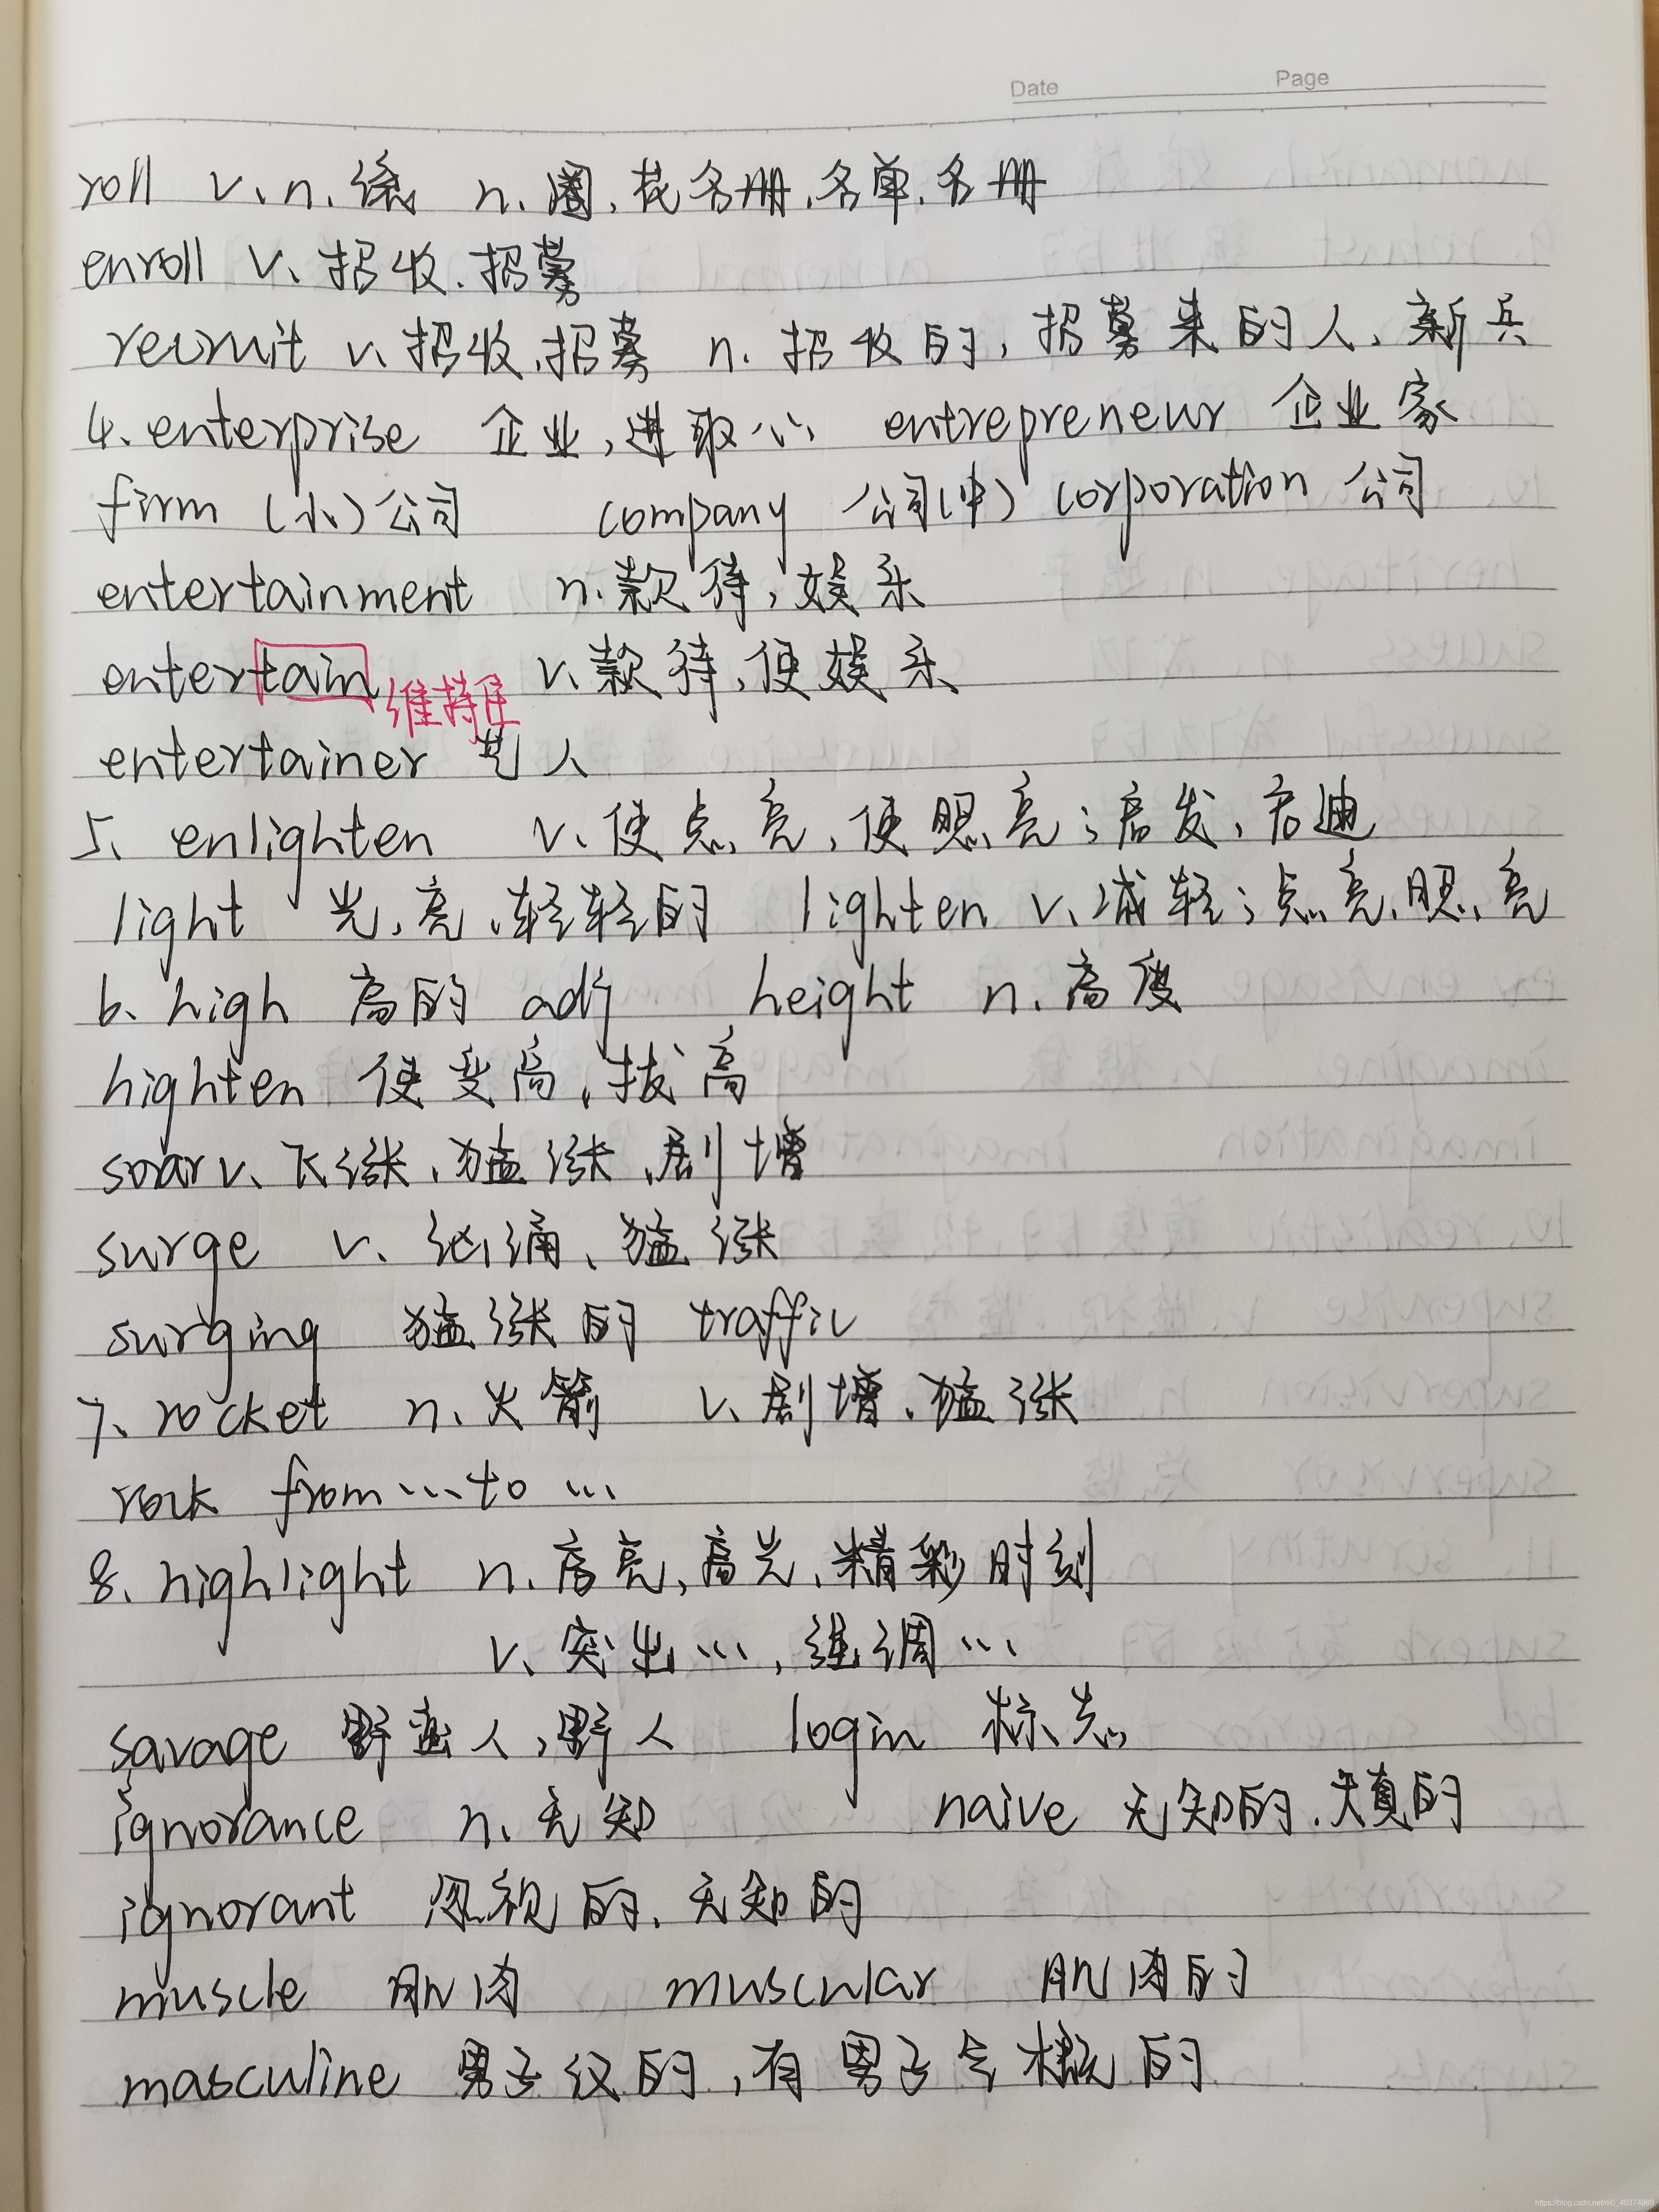 Date Page
roll v. n. 滚 n. 圈, 花名册, 名单, 名册
enroll v. 招收, 招募
recruit v. 招收, 招募 n. 招收的, 招募来的人, 新兵
4. enterprise 企业, 进取心 entrepreneur 企业家
firm (小) 公司 company 公司(中) corporation 公司
entertainment n. 款待, 娱乐
entertain 维持住 v. 款待, 使娱乐
entertainer 艺人
5. enlighten v. 使点亮, 使照亮; 启发, 启迪
light 光, 亮, 轻轻的 lighten v. 减轻; 点亮, 照亮
6. high 高的 adj height n. 高度
highten 使变高, 拔高
soar v. 飞涨, 猛涨, 剧增
surge v. 汹涌, 猛涨
surging 猛涨的 traffic
7. rocket n. 火箭 v. 剧增, 猛涨
rock from ... to ...
8. highlight n. 高亮, 高光, 精彩时刻
v. 突出..., 强调...
savage 野蛮人, 野人 login 标志
ignorance n. 无知 naive 无知的, 天真的
ignorant 忽视的, 无知的
muscle 肌肉 muscular 肌肉的
masculine 男子汉的, 有男子气概的
https://blog.csdn.net/m0_46374969